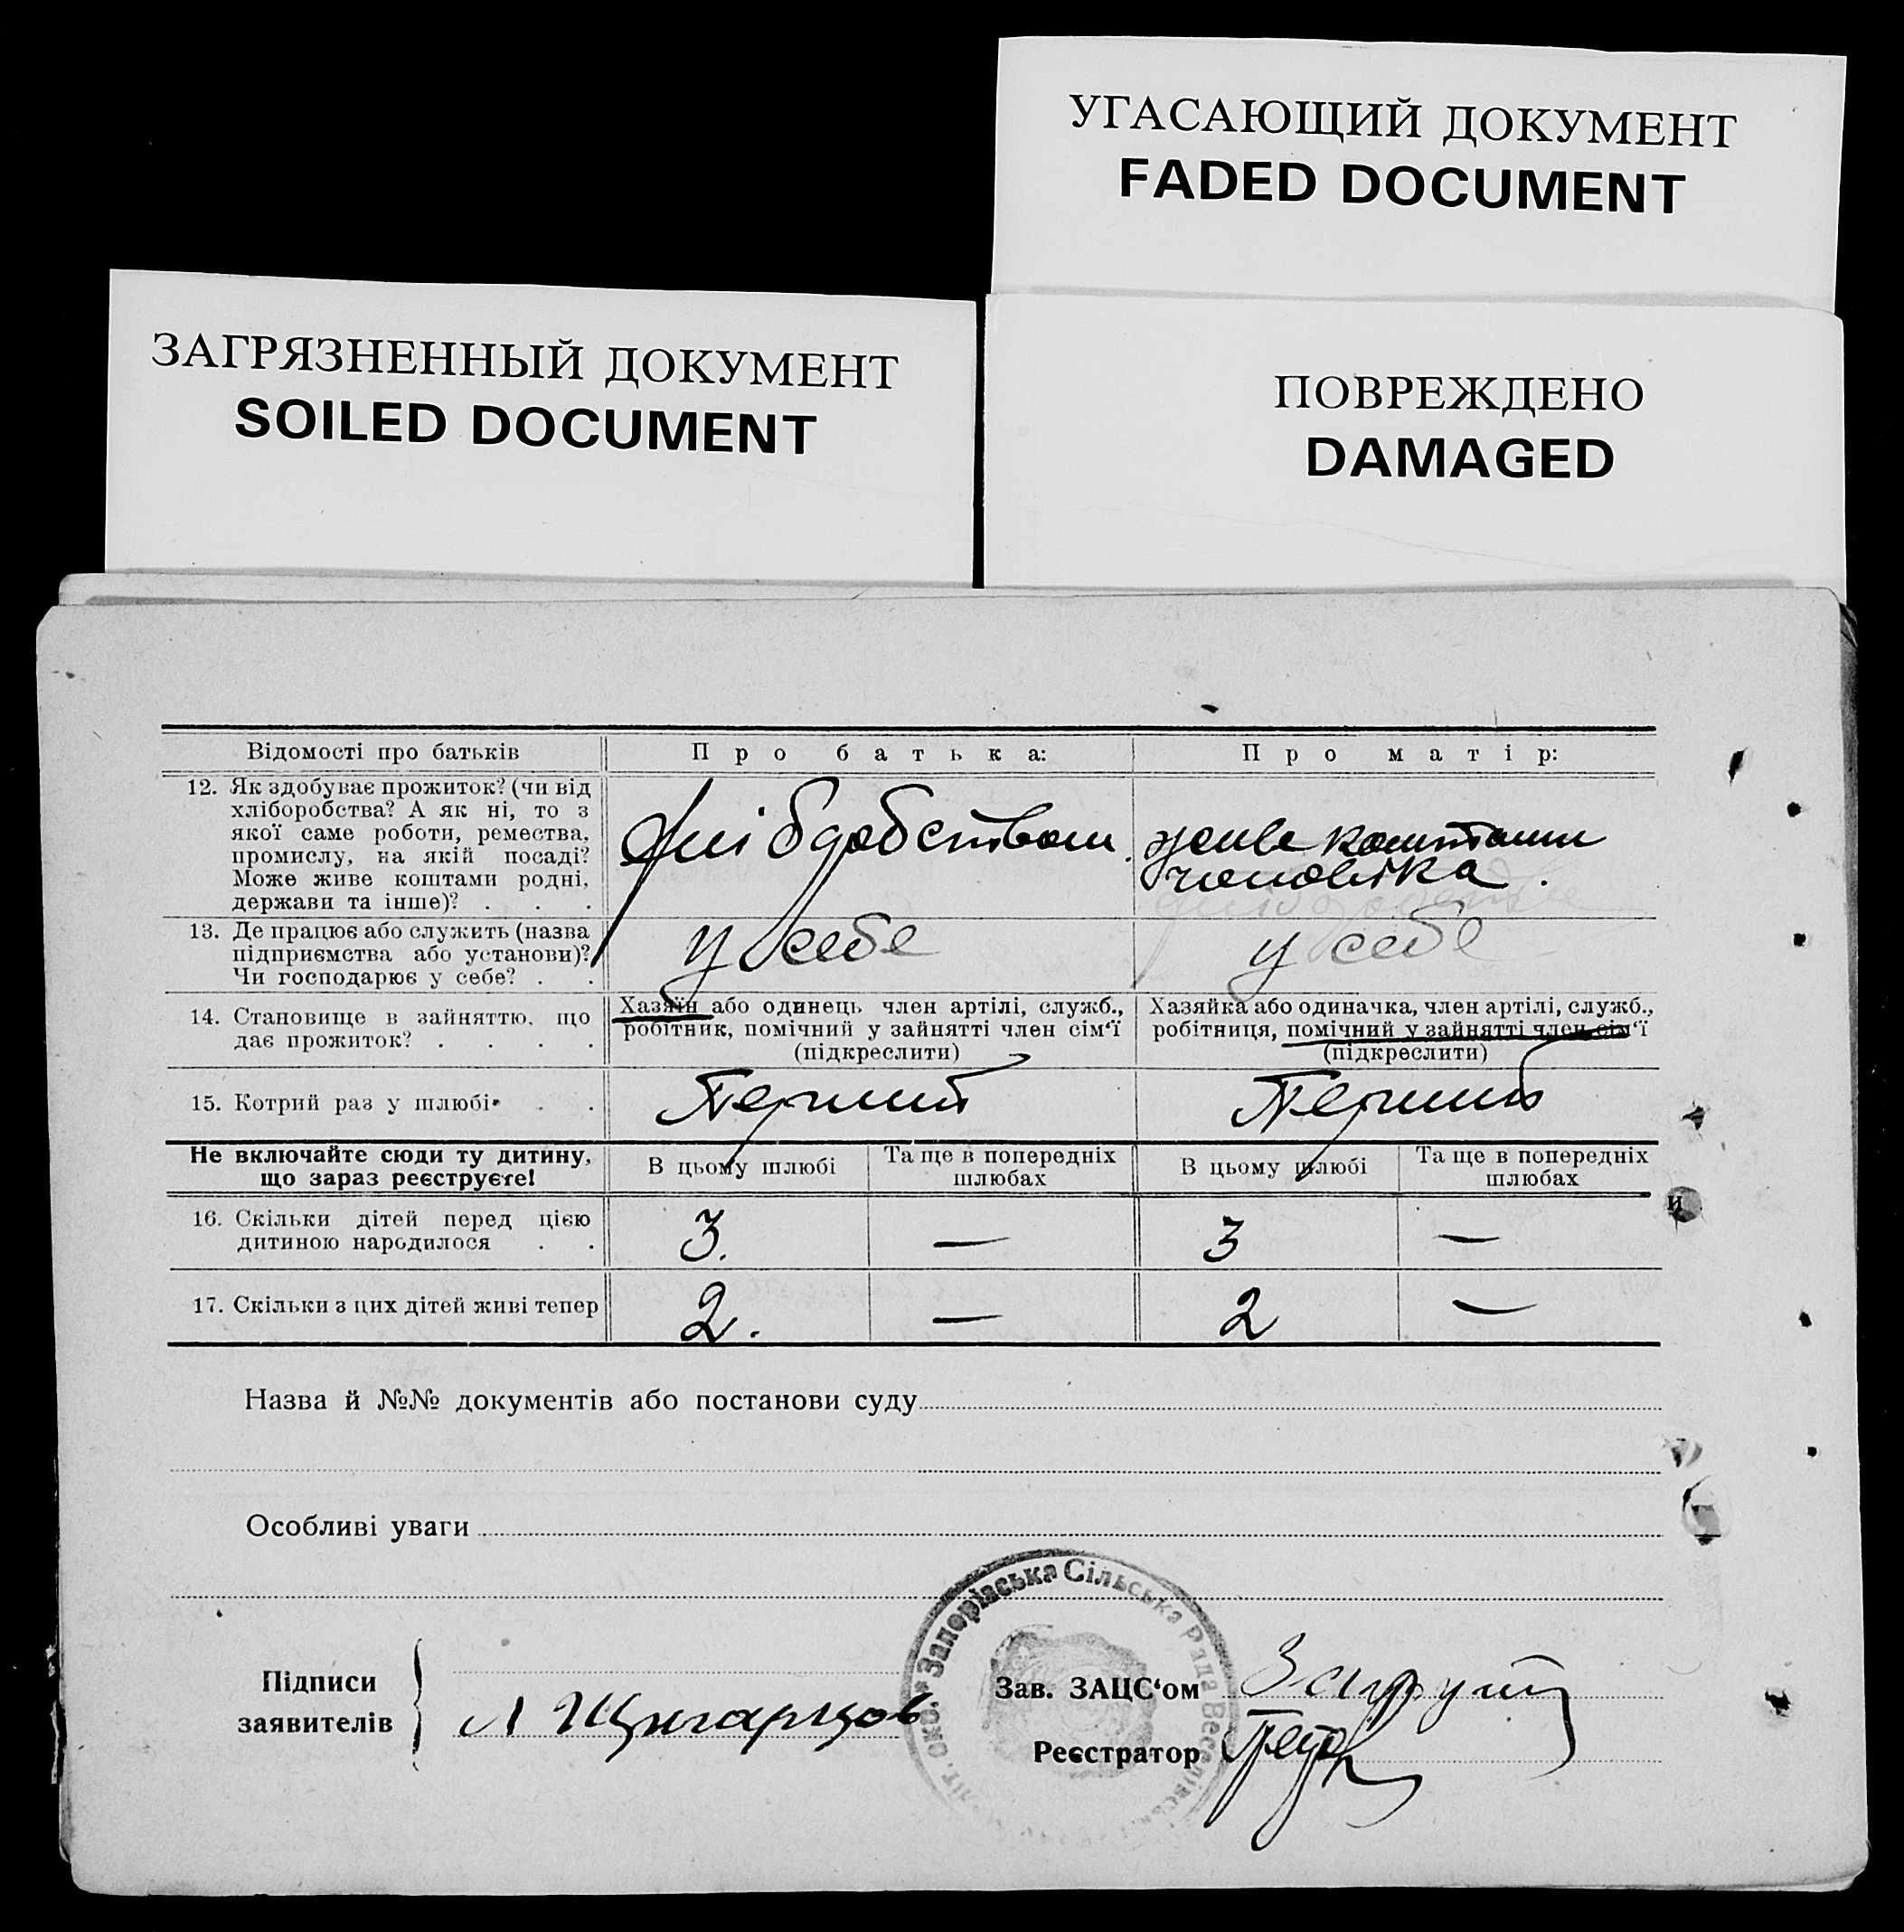 УГАСАЮЩИЙ ДОКУМЕНТ
FADED DOCUMENT
ЗАГРЯЗНЕННЫЙ ДОКУМЕНТ
SOILED DOCUMENT
ПОВРЕЖДЕНО
DAMAGED
Відомості про батьків
Про батька:
Про матір:
12. Як здобуває прожиток? (чи від
хліборобства? А як ні, то з
якої саме роботи, ремества,
промислу, на якій посаді?
Може живе коштами родні,
держави та інше)? . . .
живе коштами
чоловіка.
13. Де працює або служить (назва
підприємства або установи)?
Чи господарює у себе? . .
у себе
у себе
14. Становище в зайняттю, що
дає прожиток? . . . .
Хазяїн або одинець член артілі, служб.,
робітник, помічний у зайнятті член сім'ї
(підкреслити)
Хазяйка або одиначка, член артілі, служб.,
робітниця, помічний у зайнятті член сім'ї
(підкреслити)
15. Котрий раз у шлюбі . .
Перший
Перший
Не включайте сюди ту дитину,
що зараз реєструєте!
В цьому шлюбі
Та ще в попередніх
шлюбах
В цьому шлюбі
Та ще в попередніх
шлюбах
16. Скільки дітей перед цією
дитиною народилося . .
3.
—
3
—
17. Скільки з цих дітей живі тепер
2.
—
2
—
и
Назва й №№ документів або постанови суду
Особливі уваги
Запорізська Сільська Рада
Підписи
заявителів
Зав. ЗАЦС'ом
Реєстратор